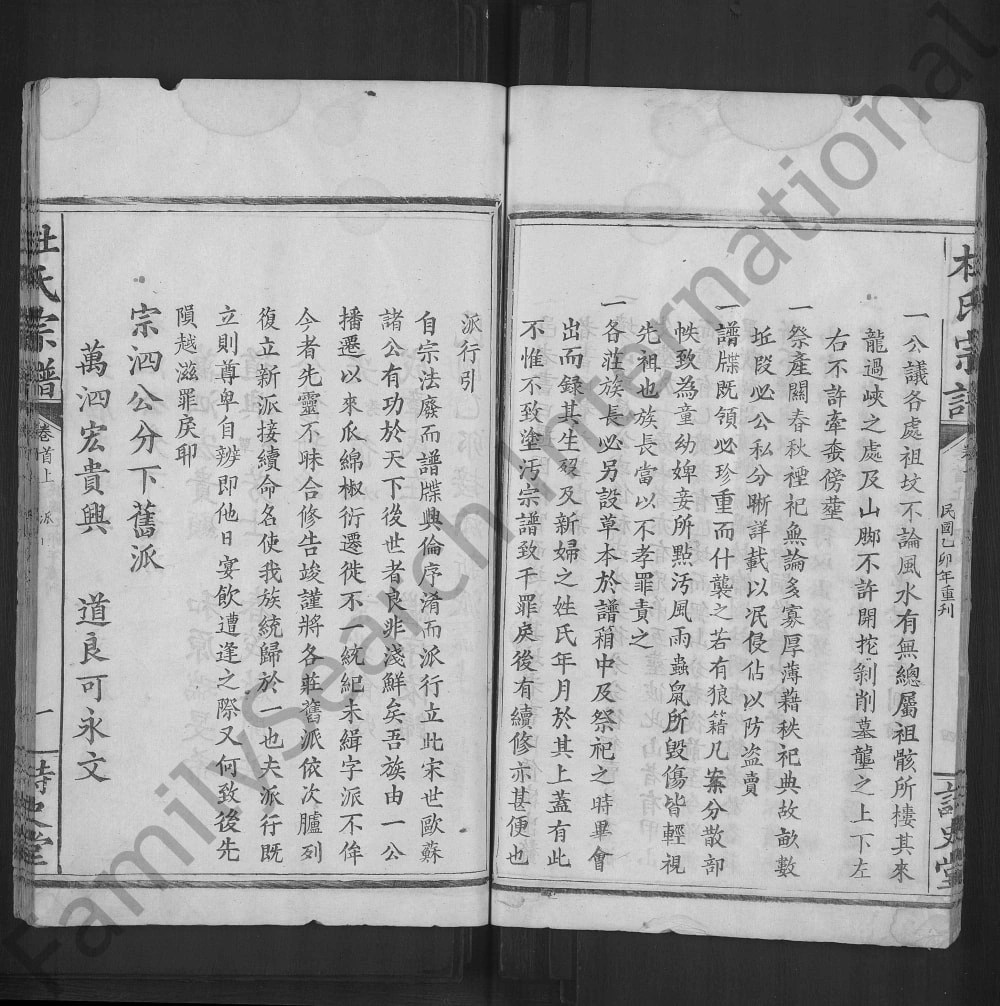 杜氏宗譜
民國乙卯年重刊
詩史堂
一公議各處祖坟不論風水有無總屬祖骸所棲其來
龍過峽之處及山脚不許開挖剝削墓壟之上下左
右不許牽套傍塟
一祭產關春秋禋祀無論多寡厚薄藉秩祀典故畝數
坵段必公私分晰詳載以泯侵佔以防盜賣
一譜牒既領必珍重而什襲之若有狼籍几案分散部
帙致為童幼婢妾所點污風雨蟲鼠所毀傷皆輕視
先祖也族長當以不孝罪責之
一各莊族長必另設草本於譜箱中及祭祀之時畢會
出而録其生歿及新婦之姓氏年月於其上蓋有此
不惟不致塗污宗譜致干罪戾後有續修亦甚便也
派行引
自宗法廢而譜牒興倫序淆而派行立此宋世歐蘇
諸公有功於天下後世者良非淺鮮矣吾族由一公
播遷以來瓜綿椒衍遷徙不一統紀未緝字派不侔
今者先靈不昧合修告竣謹將各莊舊派依次臚列
復立新派接續命名使我族統歸於一也夫派行既
立則尊卑自辨即他日宴飲遭逢之際又何致後先
隕越滋罪戾耶
宗泗公分下舊派
萬泗宏貴興 道良可永文
杜氏宗譜
卷首上
派
一
詩史堂
FamilySearch International